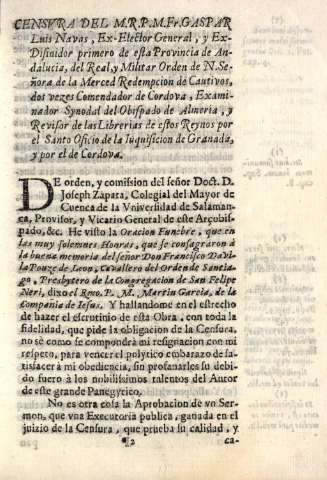 CENSVRA DEL M.R.P.M.Fr.GASPAR
Luis Navas, Ex-Elector General, y Ex-
Difinidor primero de esta Provincia de An-
dalucia, del Real, y Militar Orden de N.Se-
ñora de la Merced Redempcion de Cautivos,
dos vezes Comendador de Cordova, Exami-
nador Synodal del Obispado de Almeria, y
Revisor de las Librerias de estos Reynos por
el Santo Oficio de la Inquisicion de Granada,
y por el de Cordova.
DE orden, y comission del señor Doct. D.
Joseph Zapata, Colegial del Mayor de
Cuenca de la Vniversidad de Salaman-
ca, Provisor, y Vicario General de este Arçobis-
pado, &c. He visto la Oracion Funebre, que en
las muy solemnes Honras, que se consagraron à
la buena memoria del señor Don Francisco Davi-
la Ponze de Leon, Cavallero del Orden de Santia-
go, Presbytero de la Congregacion de San Felipe
Neri, dixo el Rmo. P. M. Martin Garcia, de la
Compañia de Jesus. Y hallandome en el estrecho
de hazer el escrutinio de esta Obra, con toda la
fidelidad, que pide la obligacion de la Censura,
no sè como se compondrà mi resignacion con mi
respeto, para vencer el polytico embarazo de sa-
tisfacer à mi obediencia, sin profanarles su debi-
do fuero à los nobilissimos talentos del Autor
de este grande Panegyrico.
No es otra cosa la Aprobacion de vn Ser-
mon, que vna Executoria publica, ganada en el
juizio de la Censura, que prueba su calidad, y
¶2 ca-